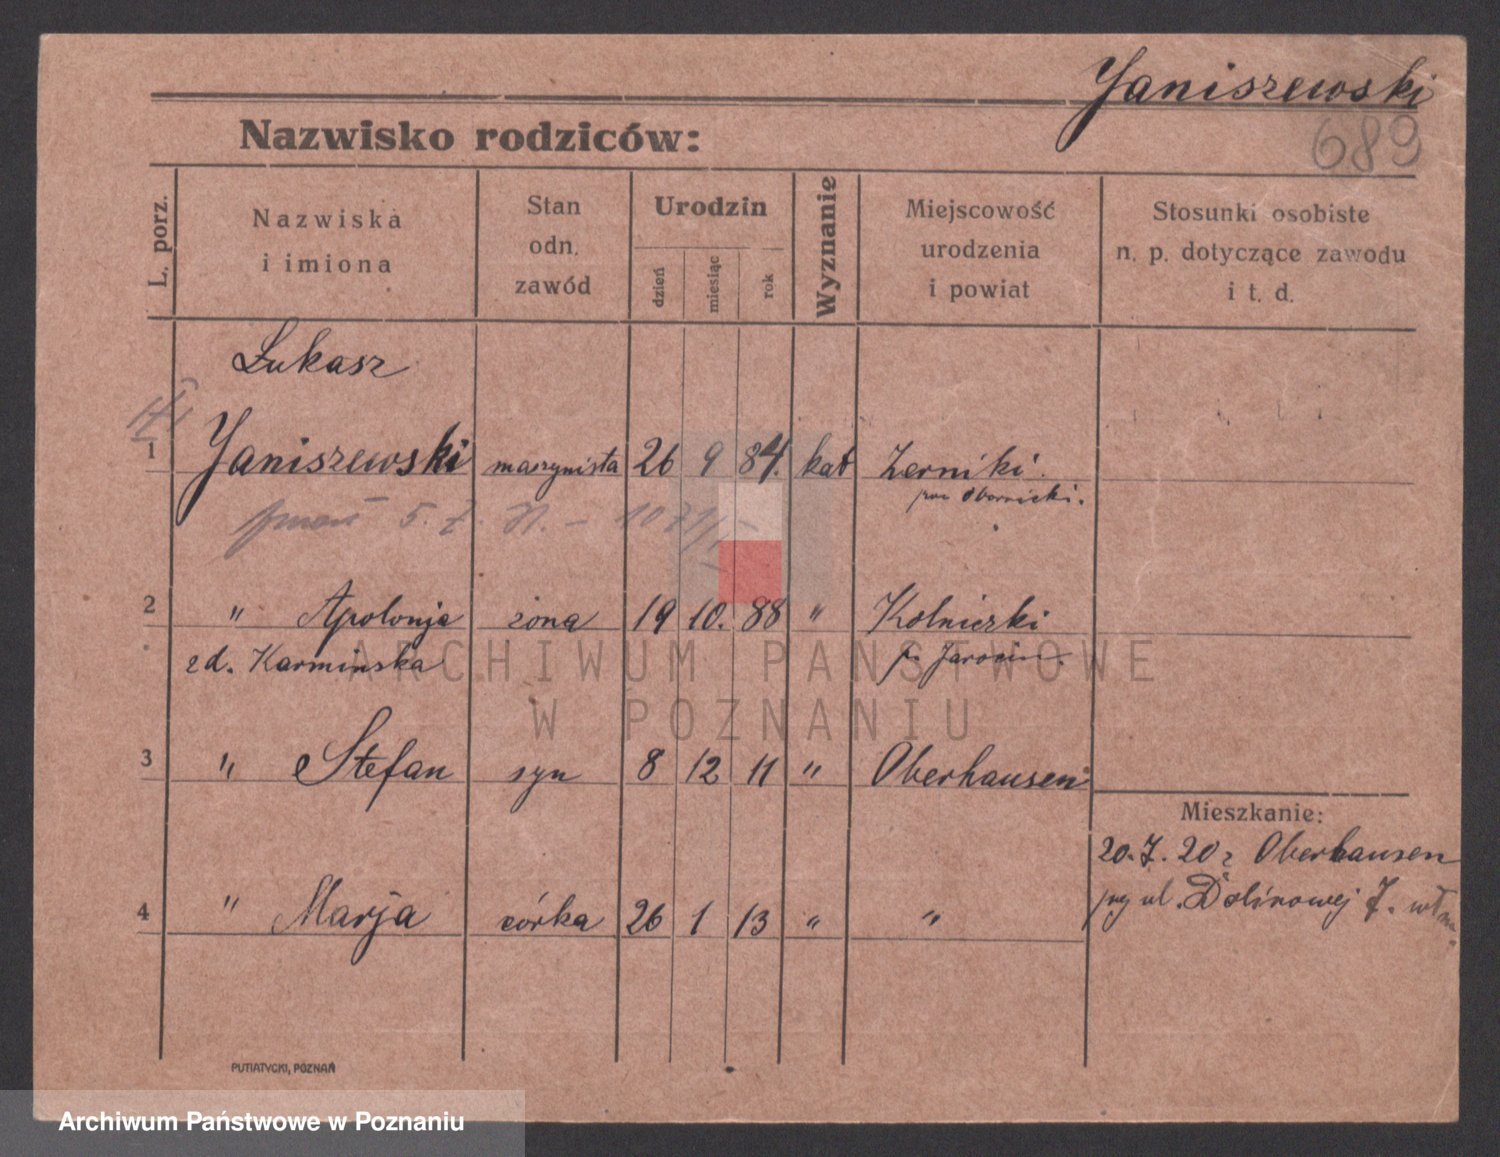 Janiszewski
689
Nazwisko rodziców:
L. porz.
Nazwiska
i imiona
Stan
odn.
zawód
Urodzin
dzień
miesiąc
rok
Wyznanie
Miejscowość
urodzenia
i powiat
Stosunki osobiste
n. p. dotyczące zawodu
i t. d.
Łukasz
1 Janiszewski maszynista 26 9 84. kat Żerniki.
pow Obornicki.
2 " Apolonja żona 19 10. 88 " Kolniczki
zd. Karminska p. Jarocin.
3 " Stefan syn 8 12 11 " Oberhausen
Mieszkanie:
20. 7. 20 z Oberhausen
4 " Marja córka 26 1 13 " "
ul. Dolinowej 7.
PUTIATYCKI, POZNAŃ
ARCHIWUM PAŃSTWOWE
W POZNANIU
Archiwum Państwowe w Poznaniu